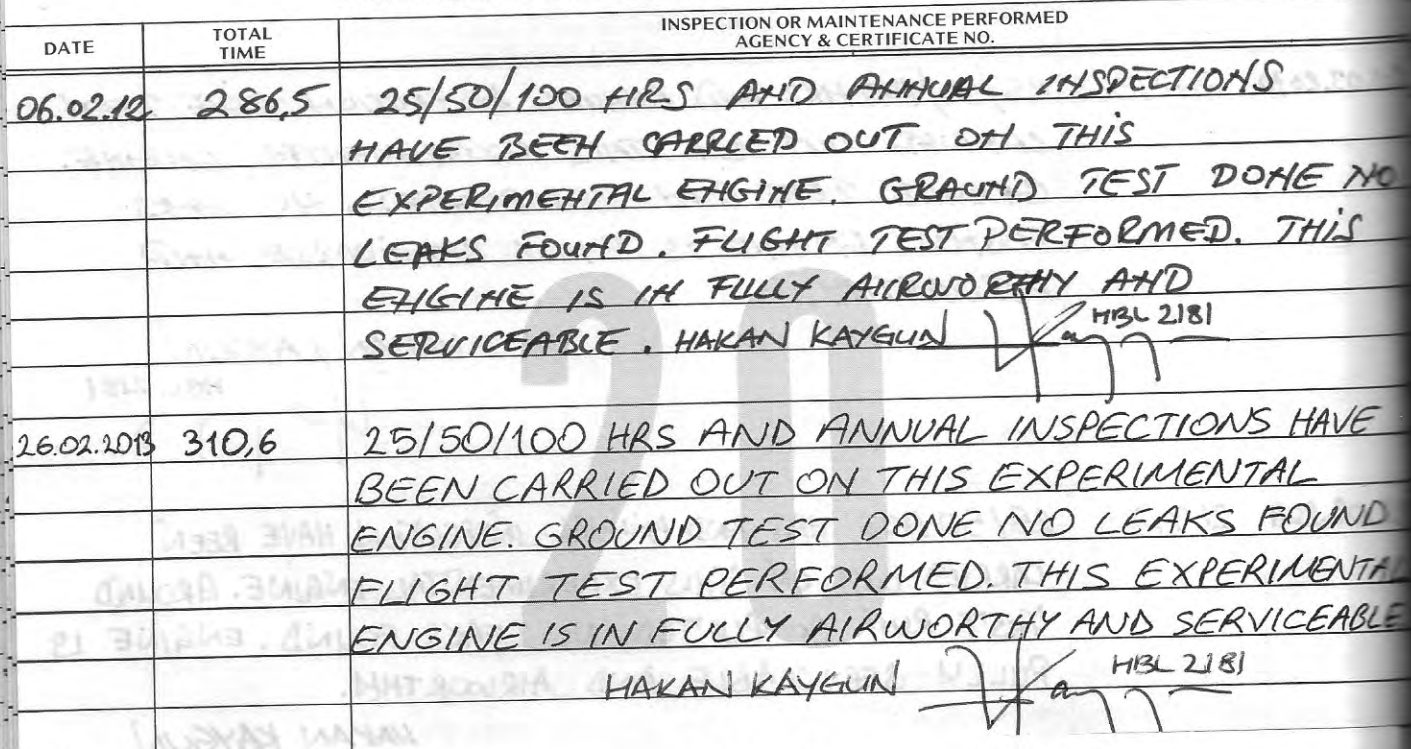 DATE TOTAL TIME INSPECTION OR MAINTENANCE PERFORMED AGENCY & CERTIFICATE NO.
06.02.12 286,5 25/50/100 HRS AND ANNUAL INSPECTIONS
HAVE BEEN CARRIED OUT ON THIS
EXPERIMENTAL ENGINE. GRAUND TEST DONE NO
LEAKS FOUND. FLIGHT TEST PERFORMED. THIS
ENGINE IS IN FULLY AIRWORTHY AND
SERVICEABLE. HAKAN KAYGUN HBL 2181
26.02.2013 310,6 25/50/100 HRS AND ANNUAL INSPECTIONS HAVE
BEEN CARRIED OUT ON THIS EXPERIMENTAL
ENGINE. GROUND TEST DONE NO LEAKS FOUND
FLIGHT TEST PERFORMED. THIS EXPERIMENTAL
ENGINE IS IN FULLY AIRWORTHY AND SERVICEABLE
HAKAN KAYGUN HBL 2181
20